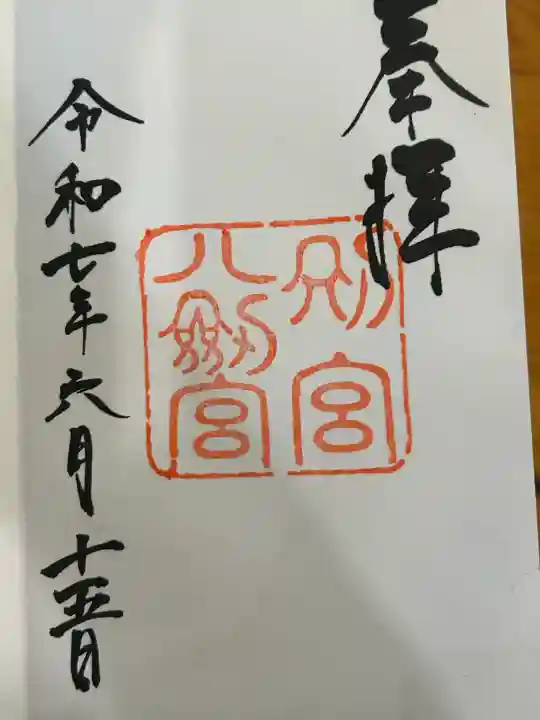 奉拝
別宮
八剣宮
令和七年六月十五日